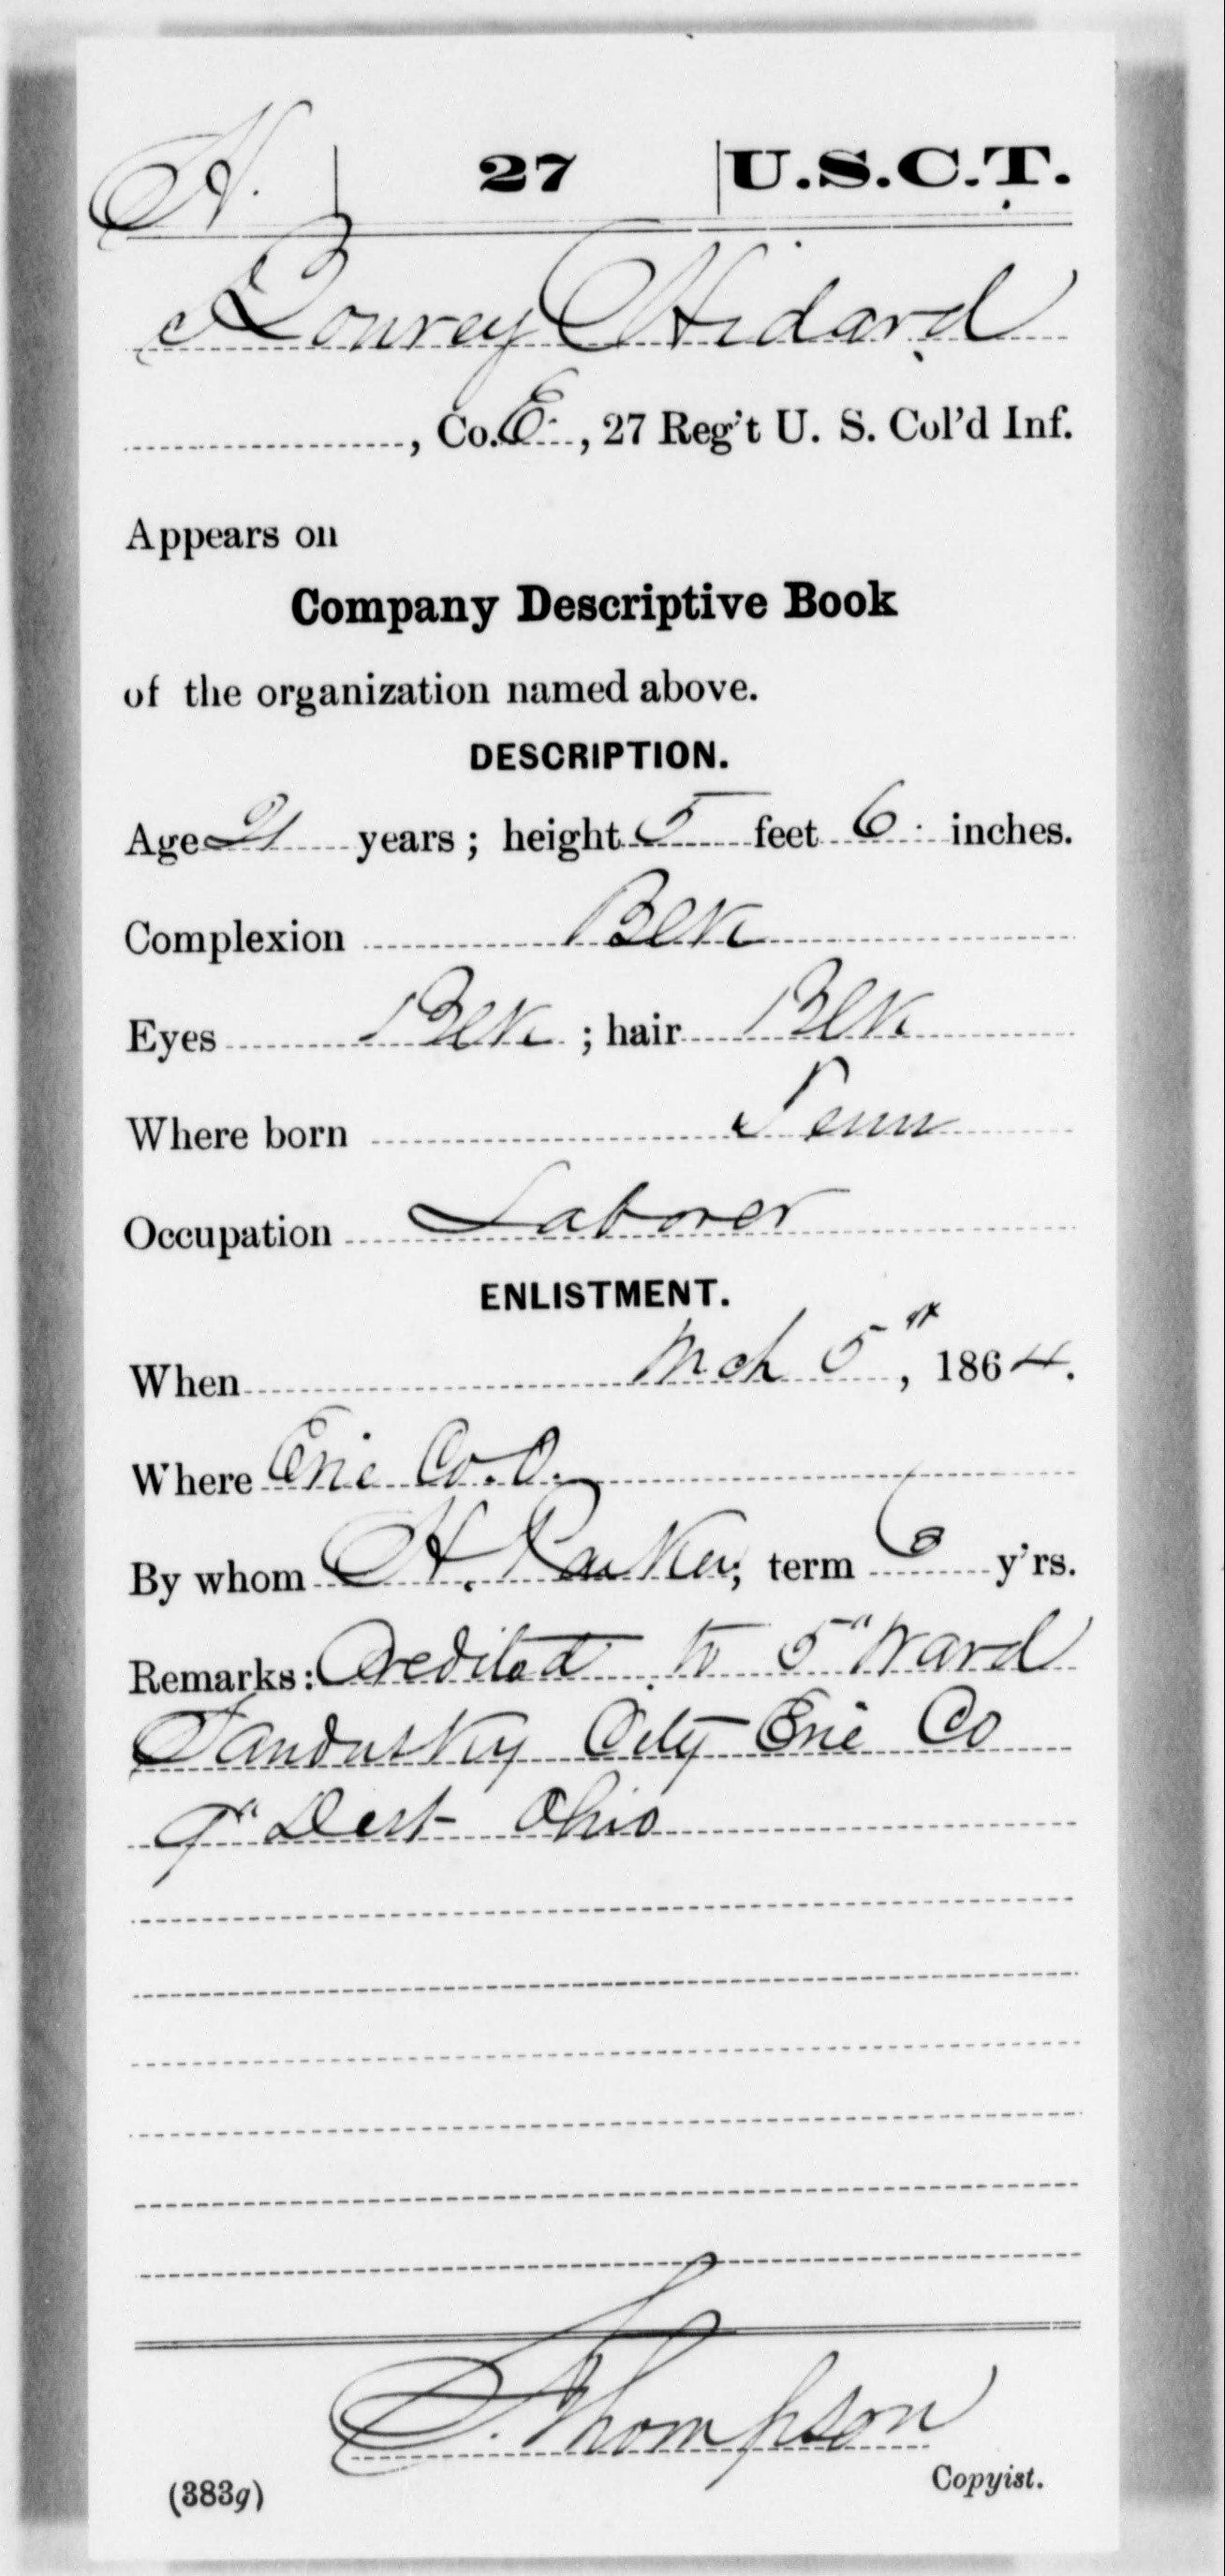 H. | 27 | U.S.C.T.
Lourey Hidard
, Co. E, 27 Reg't U. S. Col'd Inf.
Appears on
Company Descriptive Book
of the organization named above.
DESCRIPTION.
Age 21 years; height 5 feet 6 inches.
Complexion Blk
Eyes Blk; hair Blk
Where born Penn
Occupation Laborer
ENLISTMENT.
When Mch 5", 1864.
Where Erie Co. O.
By whom H. Parker; term y'rs.
Remarks: Credited to 5" Ward
Sandusky City Erie Co
9" Dist Ohio
S. Thompson
Copyist.
(383g)